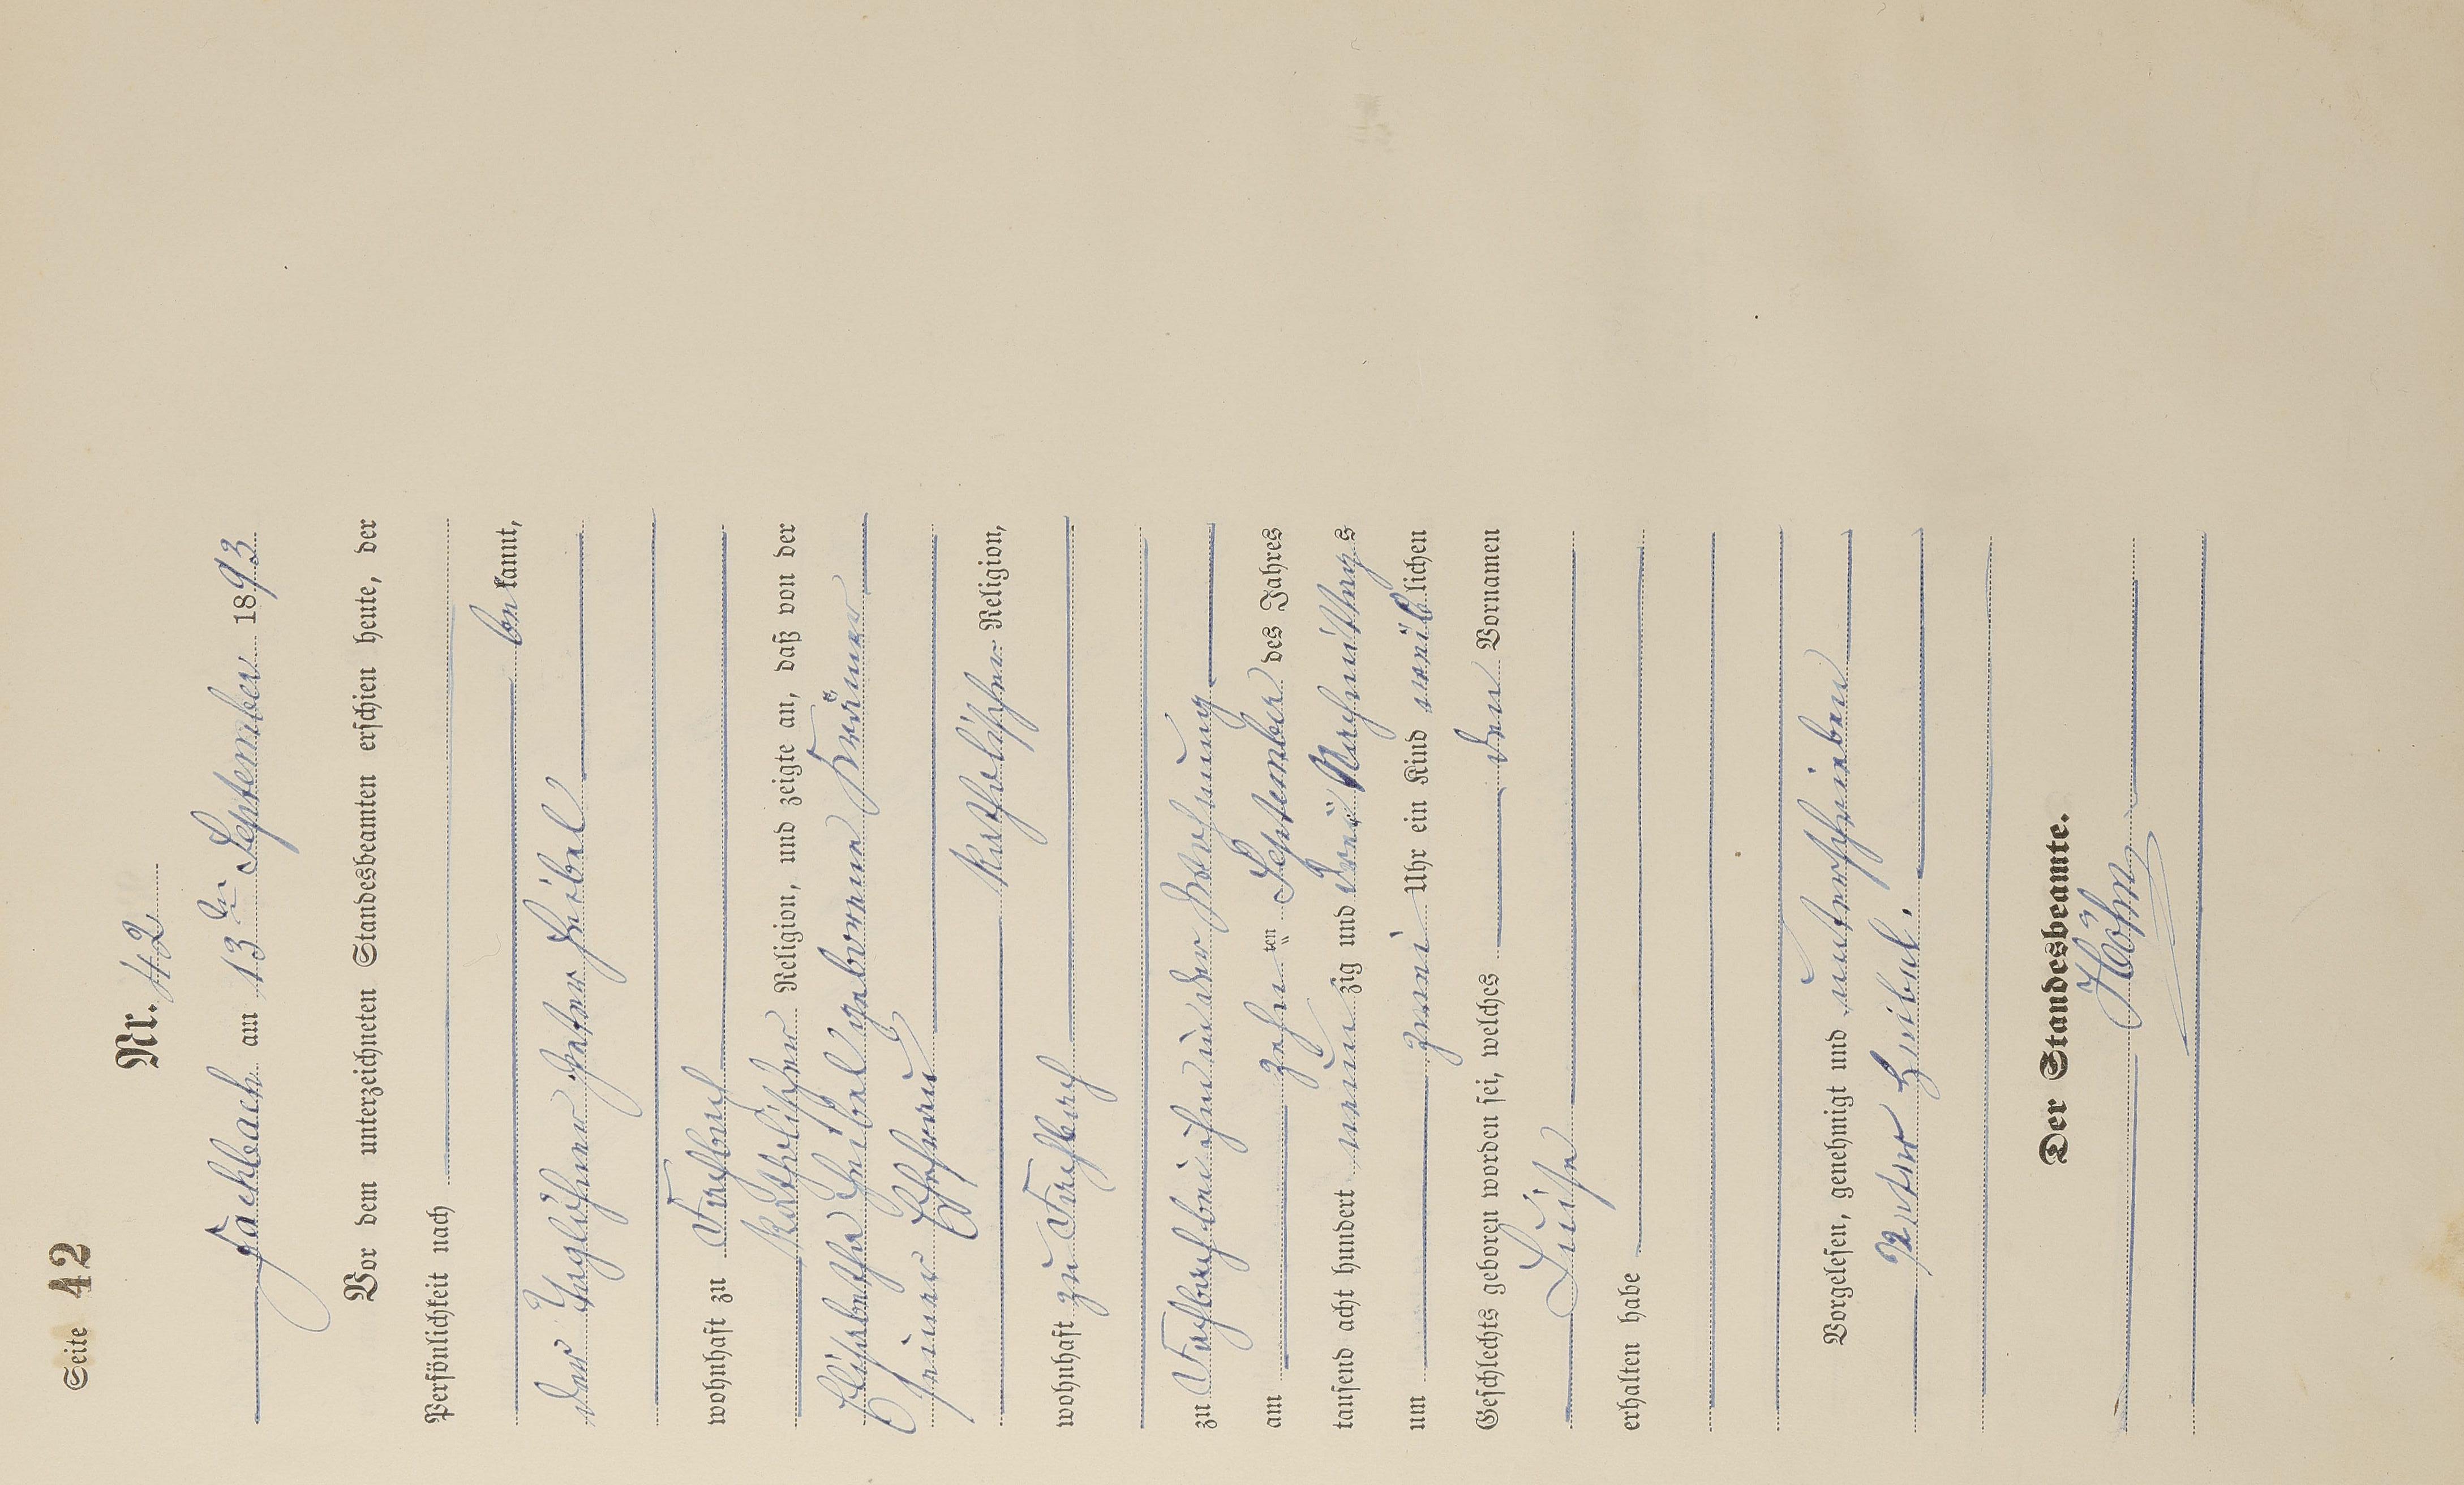 Seite 42
Nr. 42
Fachbach am 13ten September 1893
Vor dem unterzeichneten Standesbeamten erschien heute, der
Persönlichkeit nach
bekannt,
der Taglöhner Peter Heibel
wohnhaft zu Fachbach
katholischer Religion, und zeigte an, daß von der
Elisabetha Heibel geborene
seiner Ehefrau
katholischer Religion,
wohnhaft zu Fachbach
zu Fachbach bei ihm in der Wohnung
am zehn ten September des Jahres
tausend acht hundert neunzig und drei Nachmittags
um zwei Uhr ein Kind weiblichen
Geschlechts geboren worden sei, welches den Vornamen
Luise
erhalten habe
Vorgelesen, genehmigt und unterschrieben
Peter Heibel.
Der Standesbeamte.
Höhn